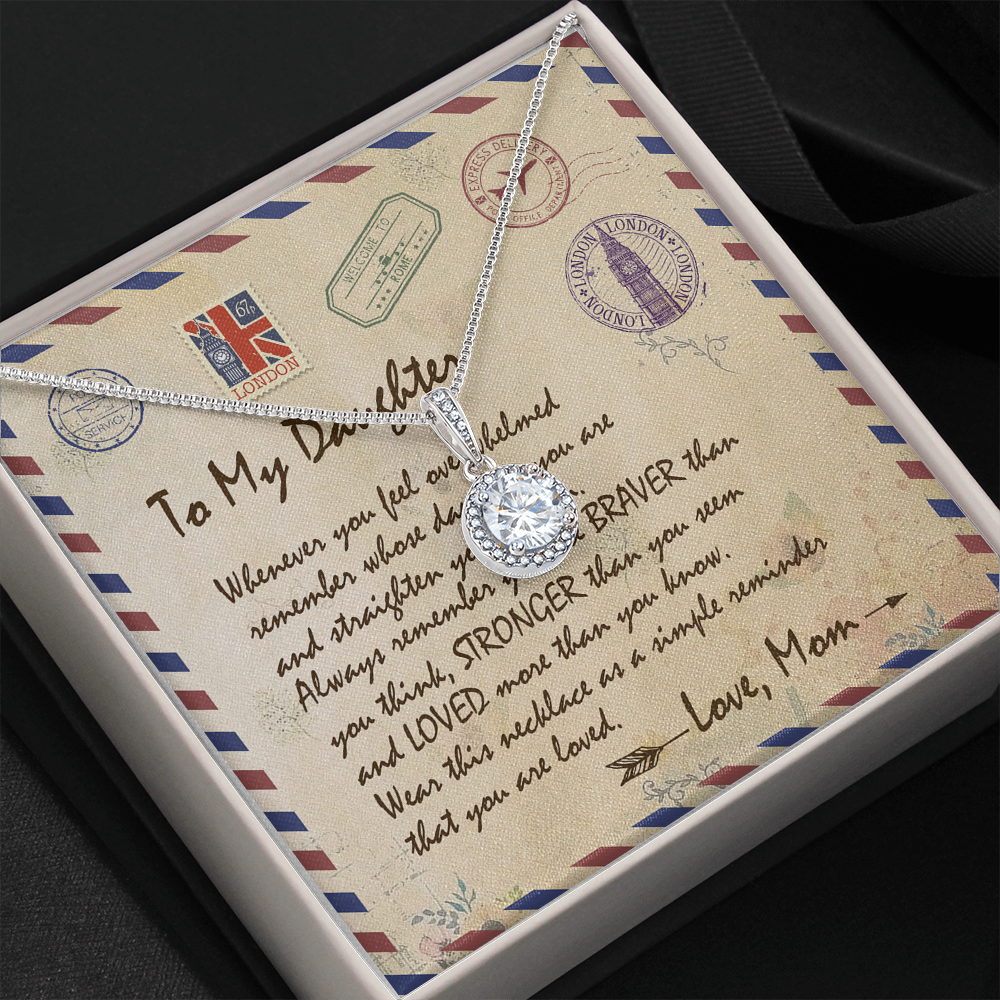 EXPRESS DELIVERY
POST OFFICE DEPARTMENT
WELCOME TO
ROME
LONDON LONDON LONDON LONDON
67p
LONDON
SERVICE
To My Daughter
Whenever you feel overwhelmed
remember whose you are
and straighten
Always remember BRAVER than
you think, STRONGER than you seem
and LOVED more than you know.
Wear this necklace as a simple reminder
that you are loved.
Love, Mom